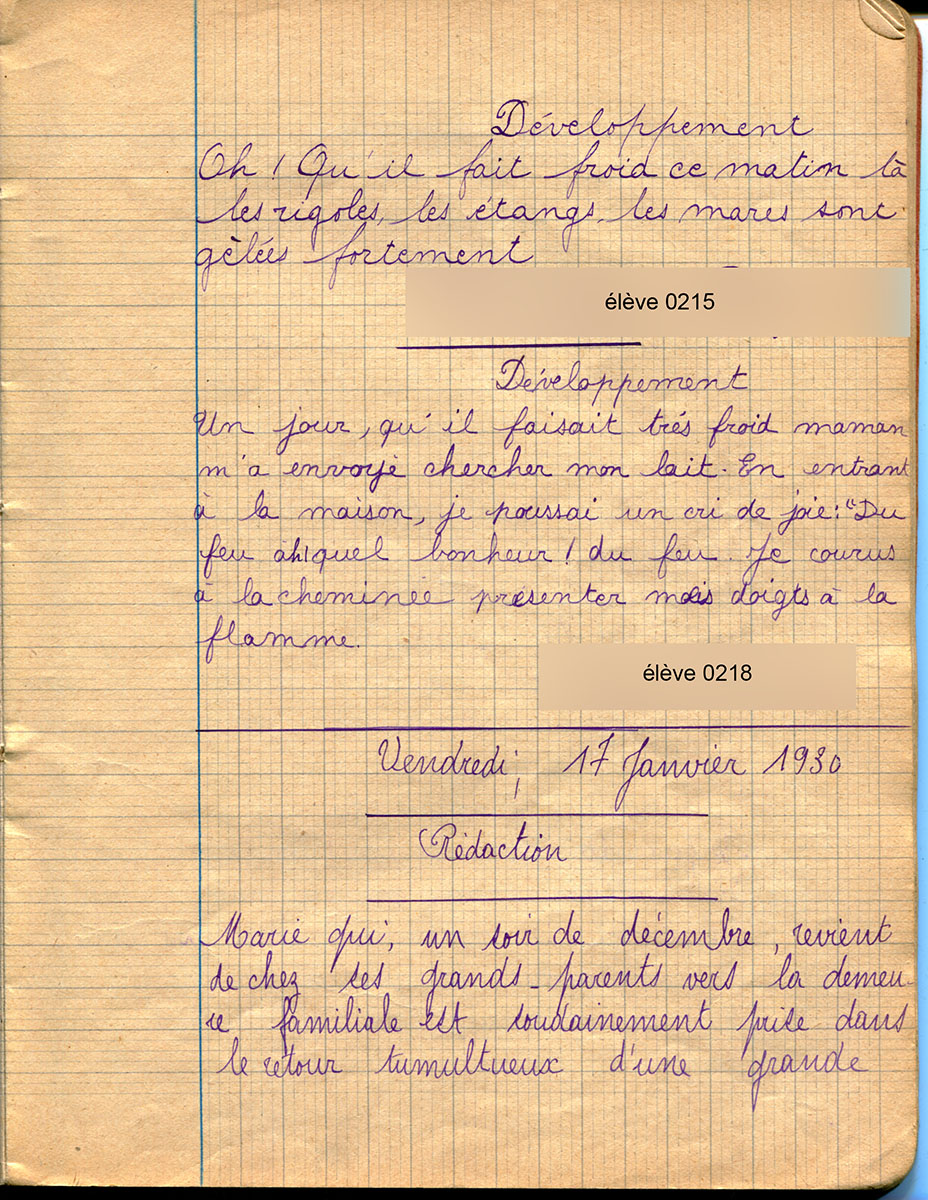 Développement
Oh ! Qu'il fait froid ce matin là
les rigoles, les étangs, les mares sont
gèlées fortement
élève 0215
Développement
Un jour, qu'il faisait trés froid maman
m'a envoyé chercher mon lait. En entrant
à la maison, je poussai un cri de joie: "Du
feu ah! quel bonheur ! du feu. Je courus
à la cheminée présenter mes doigts à la
flamme.
élève 0218
Vendredi, 17 Janvier 1930
Rédaction
Marie qui, un soir de décembre, revient
de chez ses grands-parents vers la demeu-
re familiale est soudainement prise dans
le retour tumultueux d'une grande